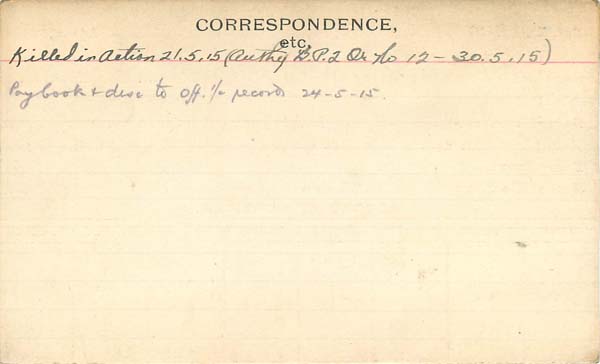 CORRESPONDENCE,
etc.
Killed in Action 21.5.15 (Authy D.P.2 Or No 12 - 30.5.15)
Paybook & disc to Off. i/c records 24-5-15.